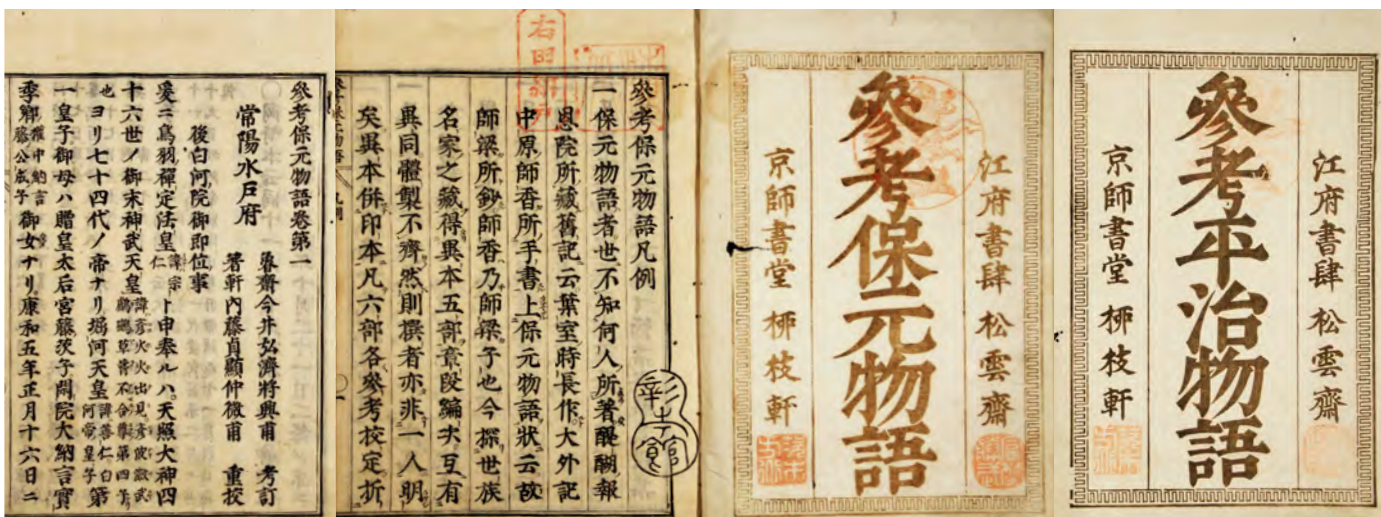 江府書肆 松雲齋
參考平治物語
京師書堂 柳枝軒
江府書肆 松雲齋
參考保元物語
京師書堂 柳枝軒
參考保元物語凡例
一保元物語者世不知何人所著醍醐報
恩院所藏舊記云葉室時長作大外記
中原師香所手書上保元物語狀云故
師梁所鈔師香乃師梁子也今探世族
名家之藏得異本五部章段編次互有
異同體製不齊然則撰者亦非一人明
矣異本併印本凡六部各參考校定折
彰考館
參考保元物語卷第一
常陽水戸府
魯齋今井弘濟將興甫 考訂
箸軒内藤貞顯仲微甫 重校
後白河院御即位事
爰ニ鳥羽禪定法皇諱宗仁ト申奉ルハ天照大神四
十六世ノ御末神武天皇諱彦火火出見彦波瀲武鸕鶿草葺不合尊第四子
也ヨリ七十四代ノ帝ナリ堀河天皇諱善仁白河帝皇子第
一皇子御母ハ贈皇太后宮藤茨子閑院大納言實
季卿權中納言藤公成子御女ナリ康和五年正月十六日ニ